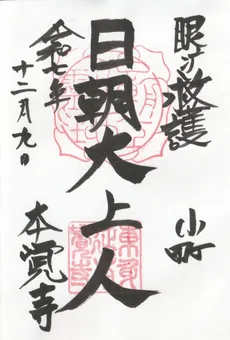 眼才救護
小町
日朝大上人
令和七年
十二月九日
本覚寺